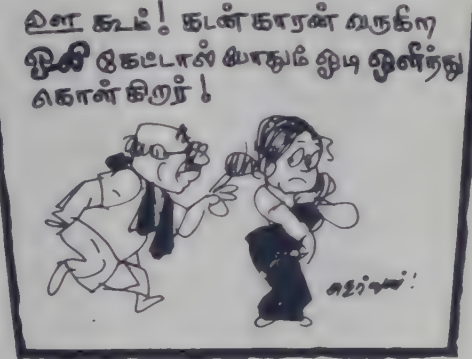 ஊஹ கூம்! கடன் காரன் வருகிற
ஒலி கேட்டால் போதும் ஓடி ஒளிந்து
கொள்கிறர்!